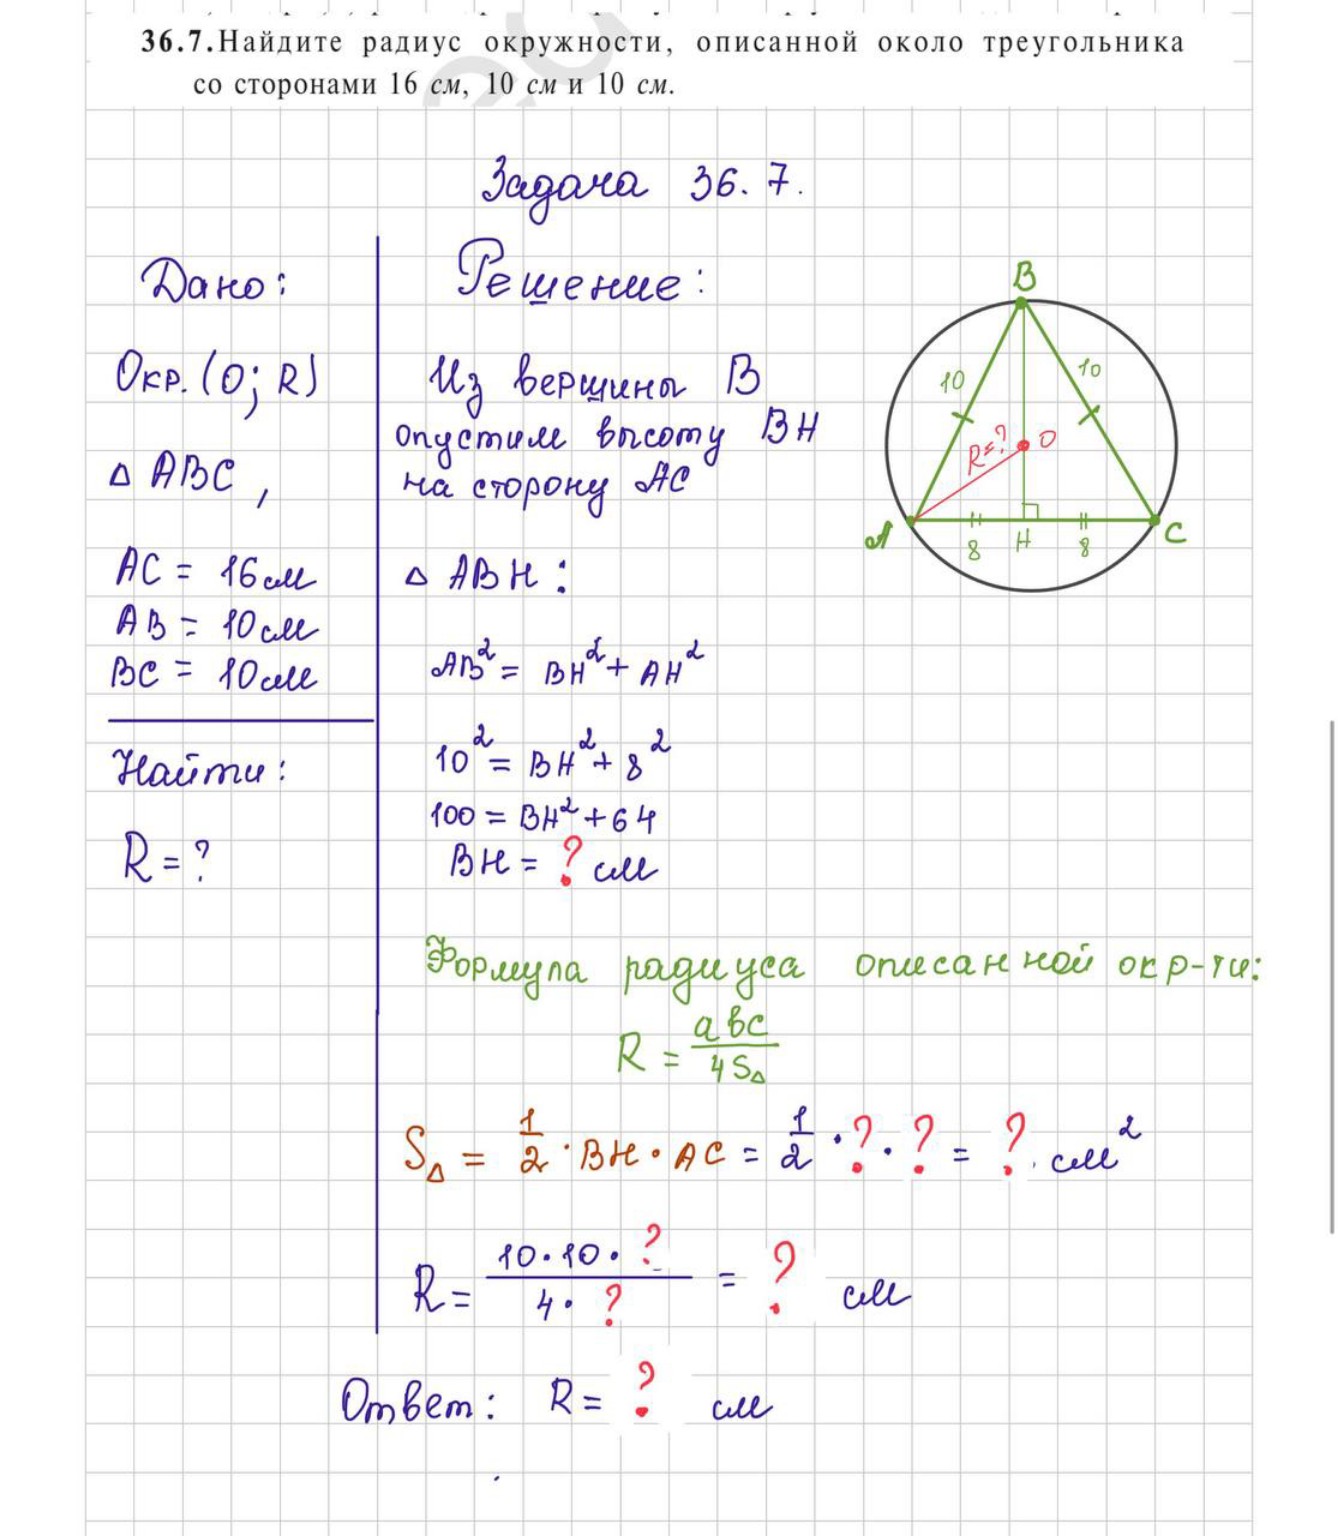 36.7. Найдите радиус окружности, описанной около треугольника
со сторонами 16 см, 10 см и 10 см.
Задача 36.7.
Дано:
Окр. (O; R)
△ ABC,
AC = 16 см
AB = 10 см
BC = 10 см
Найти:
R = ?
Решение:
Из вершины B
опустим высоту BH
на сторону AC
△ ABH:
AB² = BH² + AH²
10² = BH² + 8²
100 = BH² + 64
BH = ? см
B
10
10
R=?
O
A
8
H
8
C
Формула радиуса описанной окр-ти:
R = abc / 4S△
S△ = 1/2 · BH · AC = 1/2 · ? · ? = ? см²
R = 10 · 10 · ? / 4 · ? = ? см
Ответ: R = ? см